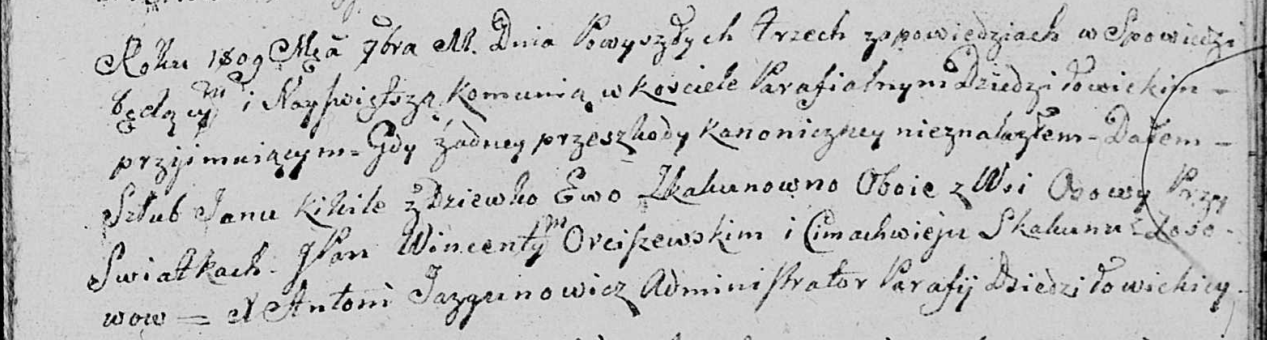 Roku 1809 Mca 7bra 11. Dnia Powyszłych trzech zapowiedziach w Spowiedzi
będącym i Nayświętszą Komunią w Kościele Parafialnym Dziedziłowickim –
przyimuiącym – Gdy żadney przeszkody kanoniczney nieznalazłem – Dałem –
Szlub Janu Kikile z Dziewko Ewo Skakunowno Oboie z Wsi Osowy Przy
Swiatkach. JPan Wincentym Orciszewskim i Cimachwieju Skakunu – Łoso-
wow = X Antoni Jazgunowicz Administrator Parafij Dziedziłowickiey –